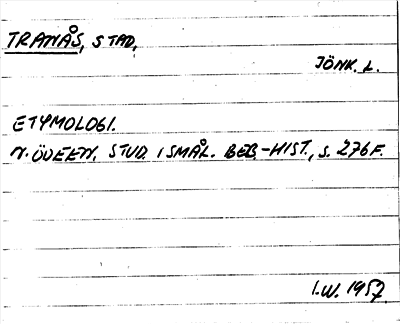 TRANÅS, STAD,
JÖNK. L.
ETYMOLOGI.
N. ÖDEEN, STUD. I SMÅL. BEB.-HIST., S. 276 F.
I.W. 1957